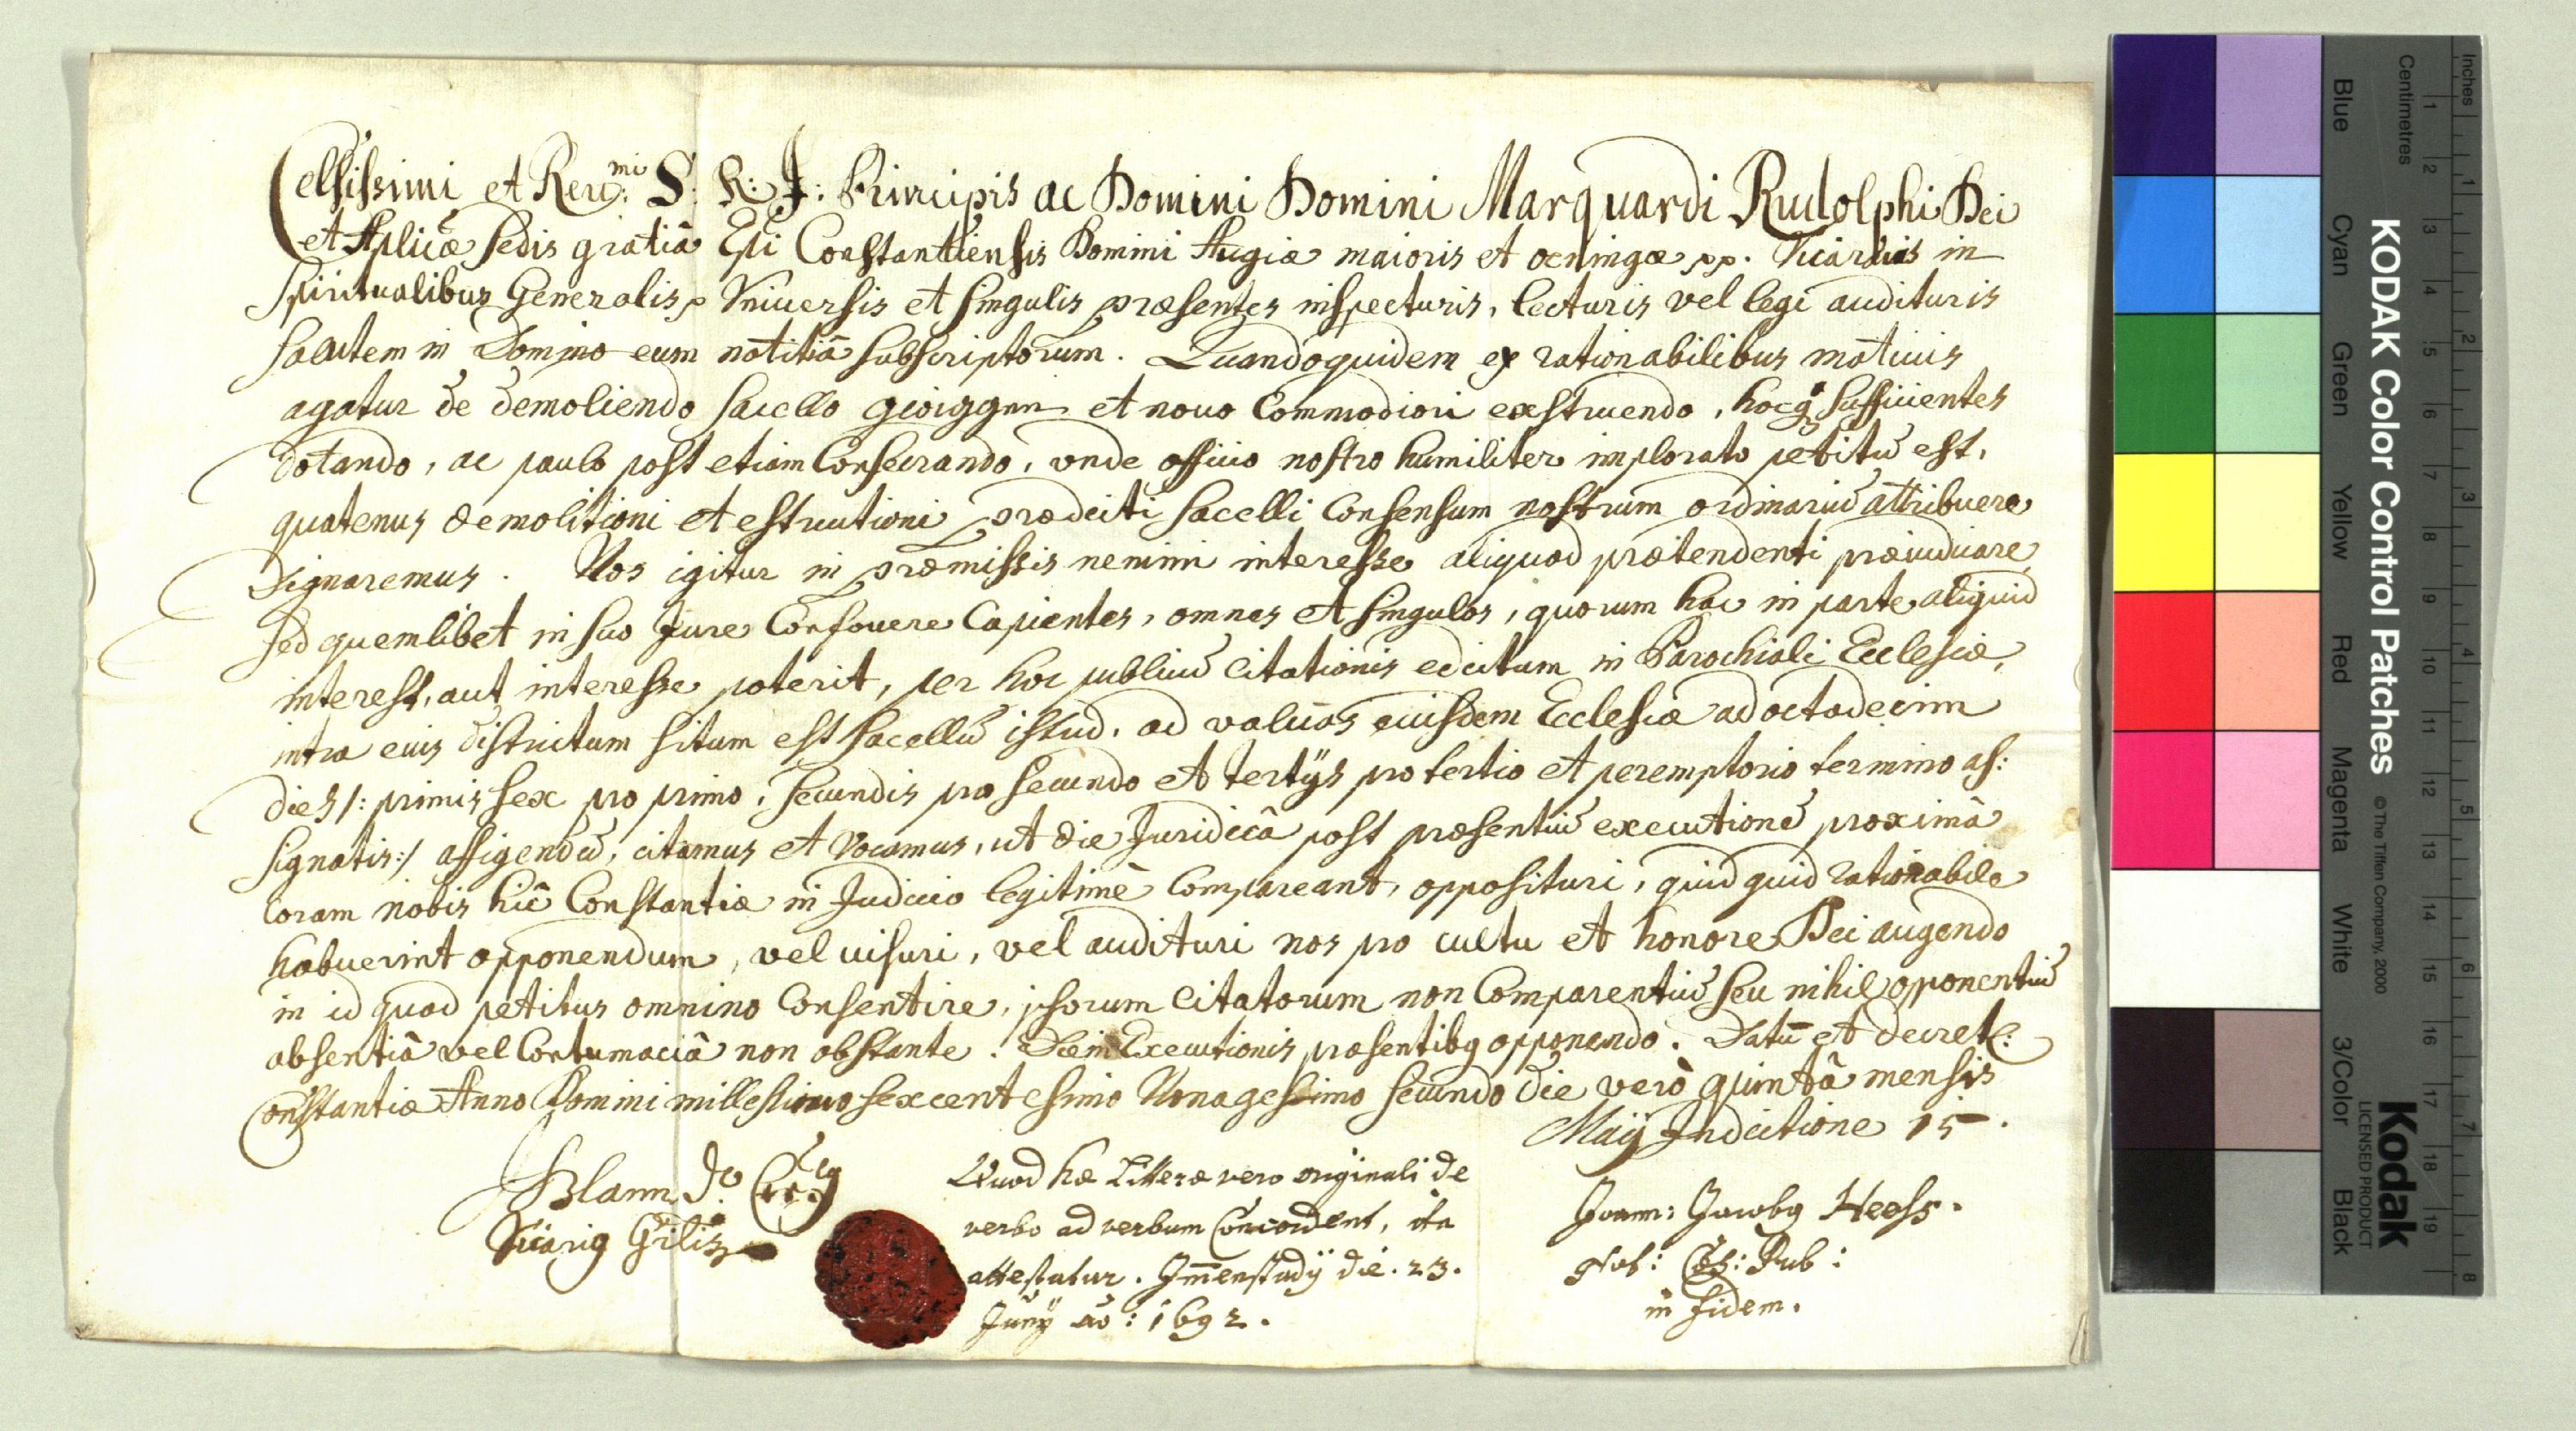 Celsissimi et Rev:mi S: R: J: Principis ac Domini Domini Marquardi Rudolphi Dei
et Aplicæ Sedis gratiâ Epi Constantiensis Domini Augiæ maioris et oeningæ pp. Vicarius in
Spiritualibus Generalis, Vniversis et singulis præsentes inspecturis, lecturis vel legi audituris
salutem in Domino cum notitiâ subscriptorum. Quandoquidem ex rationabilibus motivis
agatur de demoliendo sacello et novo Commodiori exstruendo, hocq sufficientes
dotando, ac paulo post etiam Consecrando, vnde officio nostro humiliter implorato petitū est,
quatenus demolitioni et estructioni prædicti sacelli Consensum nostrum ordinariū attribuere
Dignaremus. Nos igitur in præmissis nemini interesse aliquod prætendenti præiudicare
sed quemlibet in suo Jure Confovere Cupientes, omnes et singulos, quorum hac in parte aliquid
interest, aut interesse poterit, per hoc publicū citationis edictum in Parochiali Ecclesiæ,
intra cuis districtum situm est sacellū istud, ad valuas euisdem Ecclesiæ ad octodecim
dies /: primis sex pro primo, secundis pro secundo et tertijs pro tertio et peremptorio termino as:
signatis :/ affigendū, citamus et vocamus, ut die Juridicâ post præsentiū executionē proximâ
coram nobis hîc Constantiæ in Judicio legitimè Compareant, opposituri, quidquid rationabile
habuerint opponendum, vel visuri, vel audituri nos pro cultu et honore Dei augendo
in id quod petitus omnino Consentire, ipsorum citatorum non Comparentiū seu nihil opponentiū
absentiâ vel Contumaciâ non obstante. Diem Executionis præsentibq opponendo. Datū et decret:
Constantiæ Anno Domini millesimo sexcentesimo Nonagesimo secundo die verò quintâ mensis
Maij Indictione 15.
Blann
Vicariq Grlis
Quod hæ Litteræ vero originali de
verbo ad verbum Concordent, ita
attestatur. Im̄enstadij die. 23.
Junij aō: 1692.
Joann: Jacobq Heoss.
Not: Cæs: Pub:
in fidem.
Inches
1 2 3 4 5 6 7 8
Centimetres
1 2 3 4 5 6 7 8 9 10 11 12 13 14 15 16 17 18 19
KODAK Color Control Patches
© The Tiffen Company, 2000
Kodak
LICENSED PRODUCT
Blue
Cyan
Green
Yellow
Red
Magenta
White
3/Color
Black